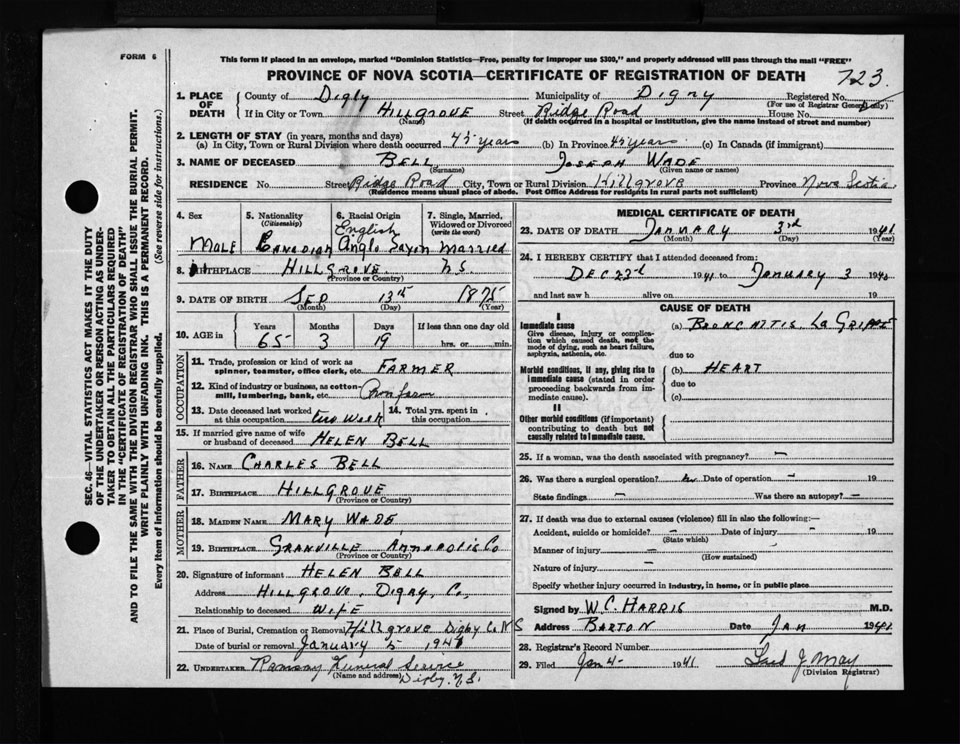 FORM 6
This form if placed in an envelope, marked "Dominion Statistics—Free, penalty for improper use $300," and properly addressed will pass through the mail "FREE"
PROVINCE OF NOVA SCOTIA—CERTIFICATE OF REGISTRATION OF DEATH 723
1. PLACE OF DEATH County of Digby Municipality of Digby Registered No.
(For use of Registrar General only)
If in City or Town HILLGROVE Street Ridge Road House No.
(Name) (If death occurred in a hospital or institution, give the name instead of street and number)
2. LENGTH OF STAY (in years, months and days)
(a) In City, Town or Rural Division where death occurred 45 years (b) In Province 45 years (c) In Canada (if immigrant)
3. NAME OF DECEASED BELL JOSEPH WADE
(Surname) (Given name or names)
RESIDENCE No. Street Ridge Road City, Town or Rural Division Hillgrove Province Nova Scotia
(Residence means usual place of abode. Post Office Address for residents in rural parts not sufficient)
4. Sex Male
5. Nationality (Citizenship) Canadian
6. Racial Origin English Anglo Saxon
7. Single, Married, Widowed or Divorced (write the word) Married
8. BIRTHPLACE HILLGROVE NS
(Province or Country)
9. DATE OF BIRTH SEP 13th 1875
(Month) (Day) (Year)
10. AGE in Years Months Days If less than one day old
65 3 19 hrs. or min.
OCCUPATION
11. Trade, profession or kind of work as spinner, teamster, office clerk, etc. FARMER
12. Kind of industry or business, as cotton-mill, lumbering, bank, etc. Own farm
13. Date deceased last worked at this occupation two week
14. Total yrs. spent in this occupation
15. If married give name of wife or husband of deceased HELEN BELL
FATHER
16. NAME CHARLES BELL
17. BIRTHPLACE HILLGROVE
(Province or Country)
MOTHER
18. MAIDEN NAME MARY WADE
19. BIRTHPLACE GRANVILLE ANNAPOLIS Co
(Province or Country)
20. Signature of informant HELEN BELL
Address HILLGROVE, DIGBY, Co,
Relationship to deceased WIFE
21. Place of Burial, Cremation or Removal Hillgrove Digby Co N S
Date of burial or removal January 5 1941
22. UNDERTAKER Ramsay Funeral Service
(Name and address) Digby. N.S.
MEDICAL CERTIFICATE OF DEATH
23. DATE OF DEATH JANUARY 3rd 1941
(Month) (Day) (Year)
24. I HEREBY CERTIFY that I attended deceased from:
DEC 23rd to JANUARY 3
and last saw h alive on 19
CAUSE OF DEATH
I
Immediate cause
Give disease, injury or complication which caused death, not the mode of dying, such as heart failure, asphyxia, asthenia, etc.
(a) BRONCHITIS, LA GRIPPE
due to
Morbid conditions, if any, giving rise to immediate cause (stated in order proceeding backwards from immediate cause).
(b) HEART
due to
(c)
II
Other morbid conditions (if important) contributing to death but not causally related to immediate cause.
25. If a woman, was the death associated with pregnancy? —
26. Was there a surgical operation? no Date of operation — 19
State findings — Was there an autopsy? —
27. If death was due to external causes (violence) fill in also the following:—
Accident, suicide or homicide? — Date of injury — 19
(State which)
Manner of injury —
(How sustained)
Nature of injury —
Specify whether injury occurred in industry, in home, or in public place
Signed by W.C. HARRIS M.D.
Address BARTON Date JAN 1941
28. Registrar's Record Number
29. Filed Jan 4- 1941 J. May
(Division Registrar)
SEC. 46—VITAL STATISTICS ACT MAKES IT THE DUTY
OF THE UNDERTAKER OR PERSON ACTING AS UNDERTAKER
TO OBTAIN ALL THE PARTICULARS REQUIRED
IN THE "CERTIFICATE OF REGISTRATION OF DEATH"
AND TO FILE THE SAME WITH THE DIVISION REGISTRAR WHO SHALL ISSUE THE BURIAL PERMIT.
WRITE PLAINLY WITH UNFADING INK. THIS IS A PERMANENT RECORD.
Every item of information should be carefully supplied. (See reverse side for instructions.)